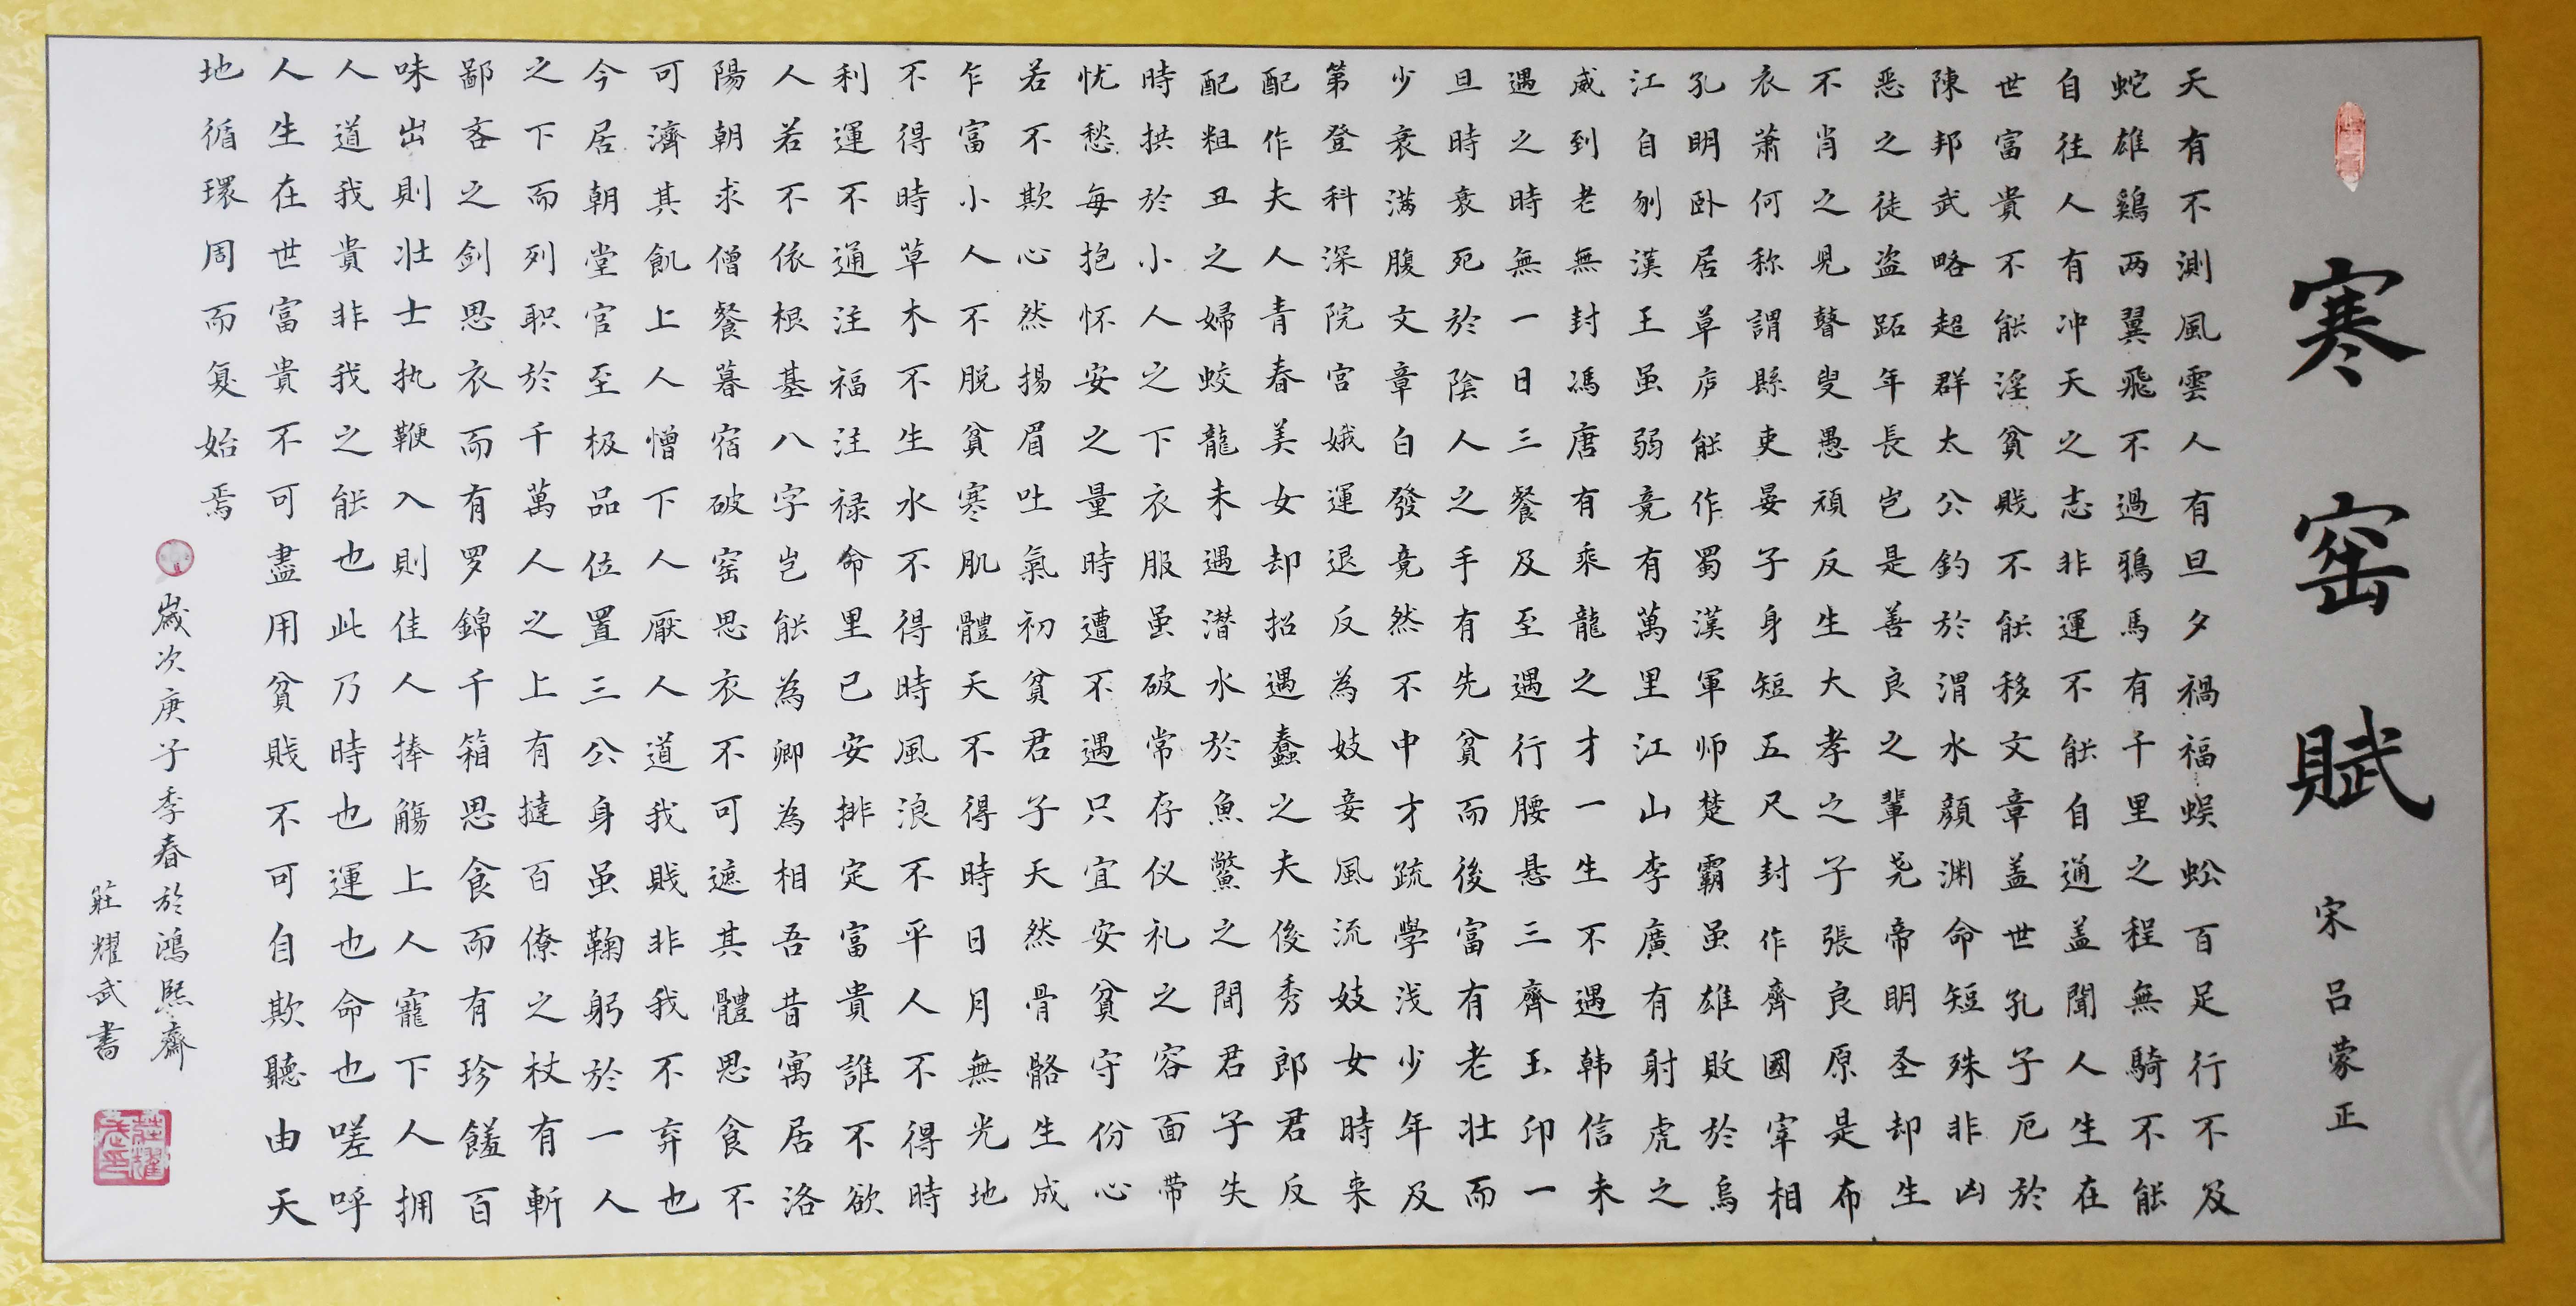 寒窑賦
宋吕蒙正
天有不测風雲人有旦夕禍福蜈蚣百足行不及
蛇雄鷄两翼飛不過鴉馬有千里之程無騎不能
自往人有冲天之志非運不能自通盖聞人生在
世富貴不能淫貧贱不能移文章盖世孔子厄於
陳邦武略超群太公釣於渭水顔渊命短殊非凶
恶之徒盗跖年長岂是善良之輩尧帝明圣却生
不肖之見瞽叟愚頑反生大孝之子張良原是布
衣萧何称謂縣吏晏子身短五尺封作齊國宰相
孔明卧居草庐能作蜀漢軍师楚霸虽雄敗於烏
江自刎漢王虽弱竟有萬里江山李廣有射虎之
威到老無封馮唐有乘龍之才一生不遇韩信未
遇之時無一日三餐及至遇行腰悬三齊玉印一
旦時衰死於陰人之手有先貧而後富有老壮而
少衰满腹文章白發竟然不中才疏學浅少年及
第登科深院宫娥運退反為妓妾風流妓女時来
配作夫人青春美女却招遇蠢之夫後秀郎君反
配粗丑之婦蛟龍未遇潜水於魚鱉之間君子失
時拱於小人之下衣服虽破常存仪礼之容面带
忧愁每抱怀安之量時遭不遇只宜安貧守份心
若不欺心然揚眉吐氣初貧君子天然骨骼生成
乍富小人不脱貧寒肌體天不得時日月無光地
不得時草木不生水不得時風浪不平人不得時
利運不通注福注禄命里已安排定富貴誰不欲
人若不依根基八字岂能為卿為相吾昔寓居洛
陽朝求僧餐暮宿破窑思衣不可遮其體思食不
可濟其飢上人憎下人厭人道我贱非我不弃也
今居朝堂官至极品位置三公身虽鞠躬於一人
之下而列职於千萬人之上有撻百僚之杖有斬
鄙吝之剑思衣而有罗錦千箱思食而有珍饈百
味出則壮士执鞭入則佳人捧觴上人寵下人拥
人道我貴非我之能也此乃時也運也命也嗟呼
人生在世富貴不可盡用貧贱不可自欺聽由天
地循環周而复始焉
嵗次庚子季春於鴻熙齋
莊耀武書